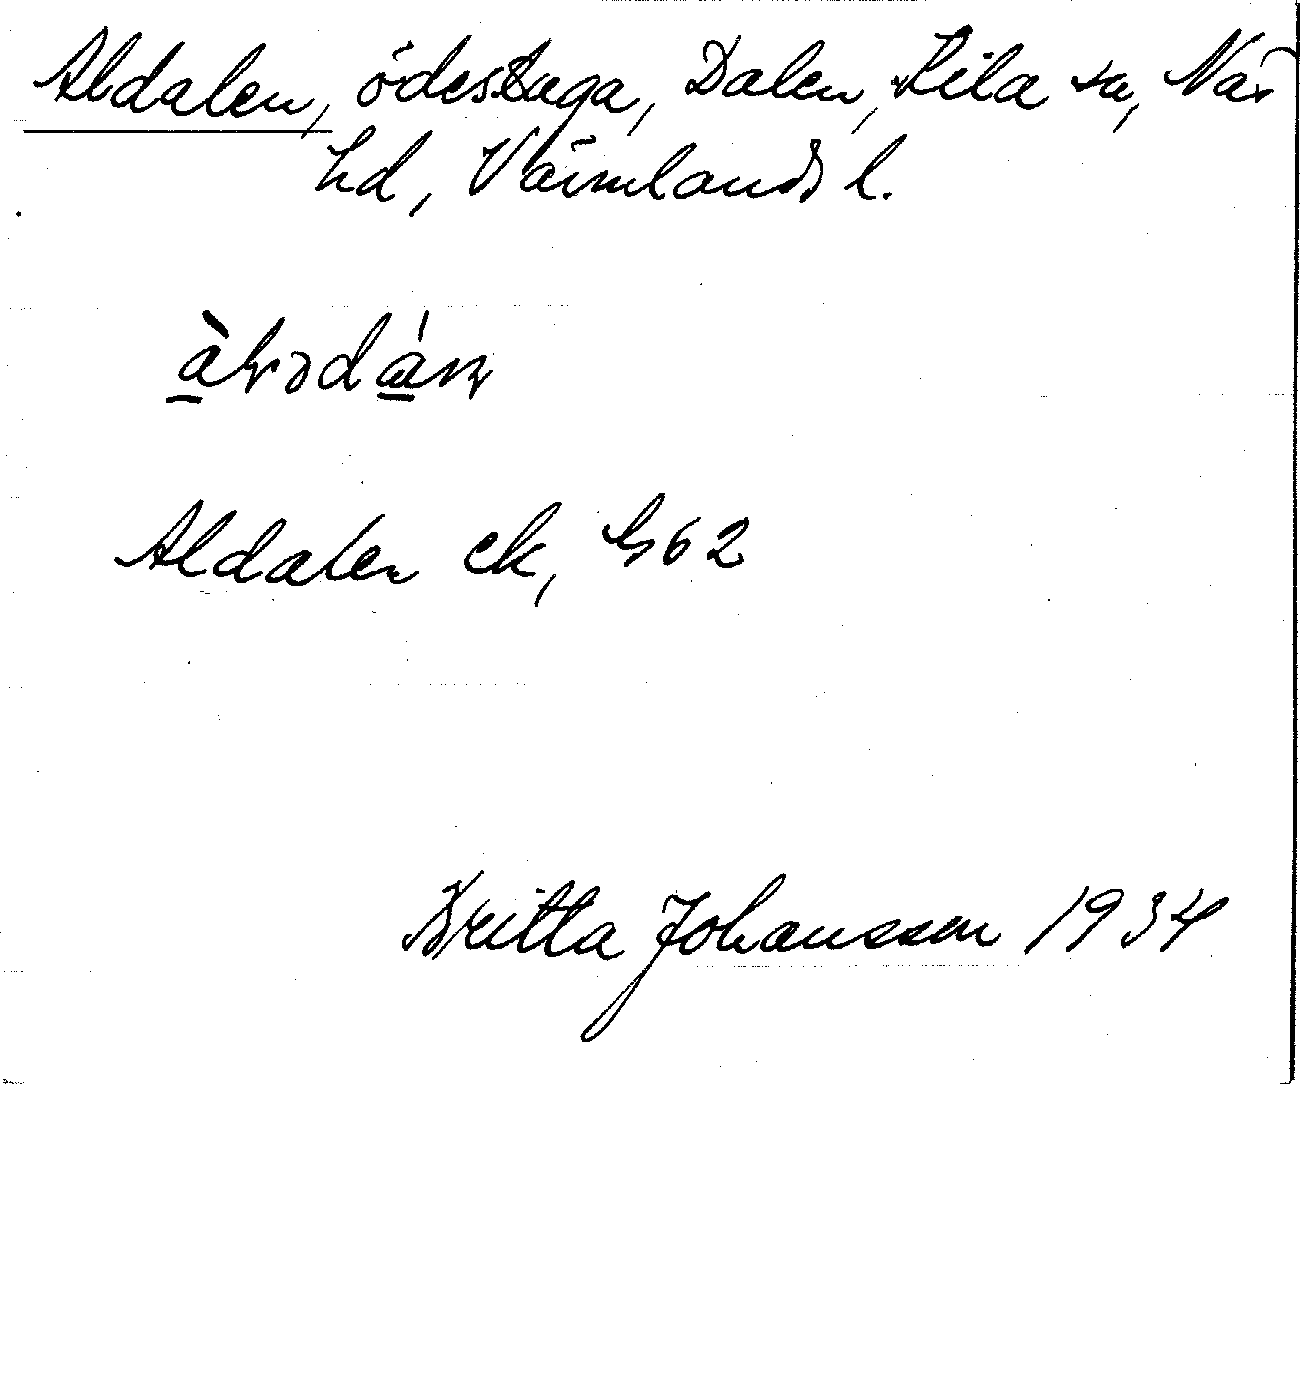 Aldalen, ödestuga, Dalen, Kila sn, Näs
hd, Värmlands l.
Aldalen ek, G62
Britta Johansson 1934